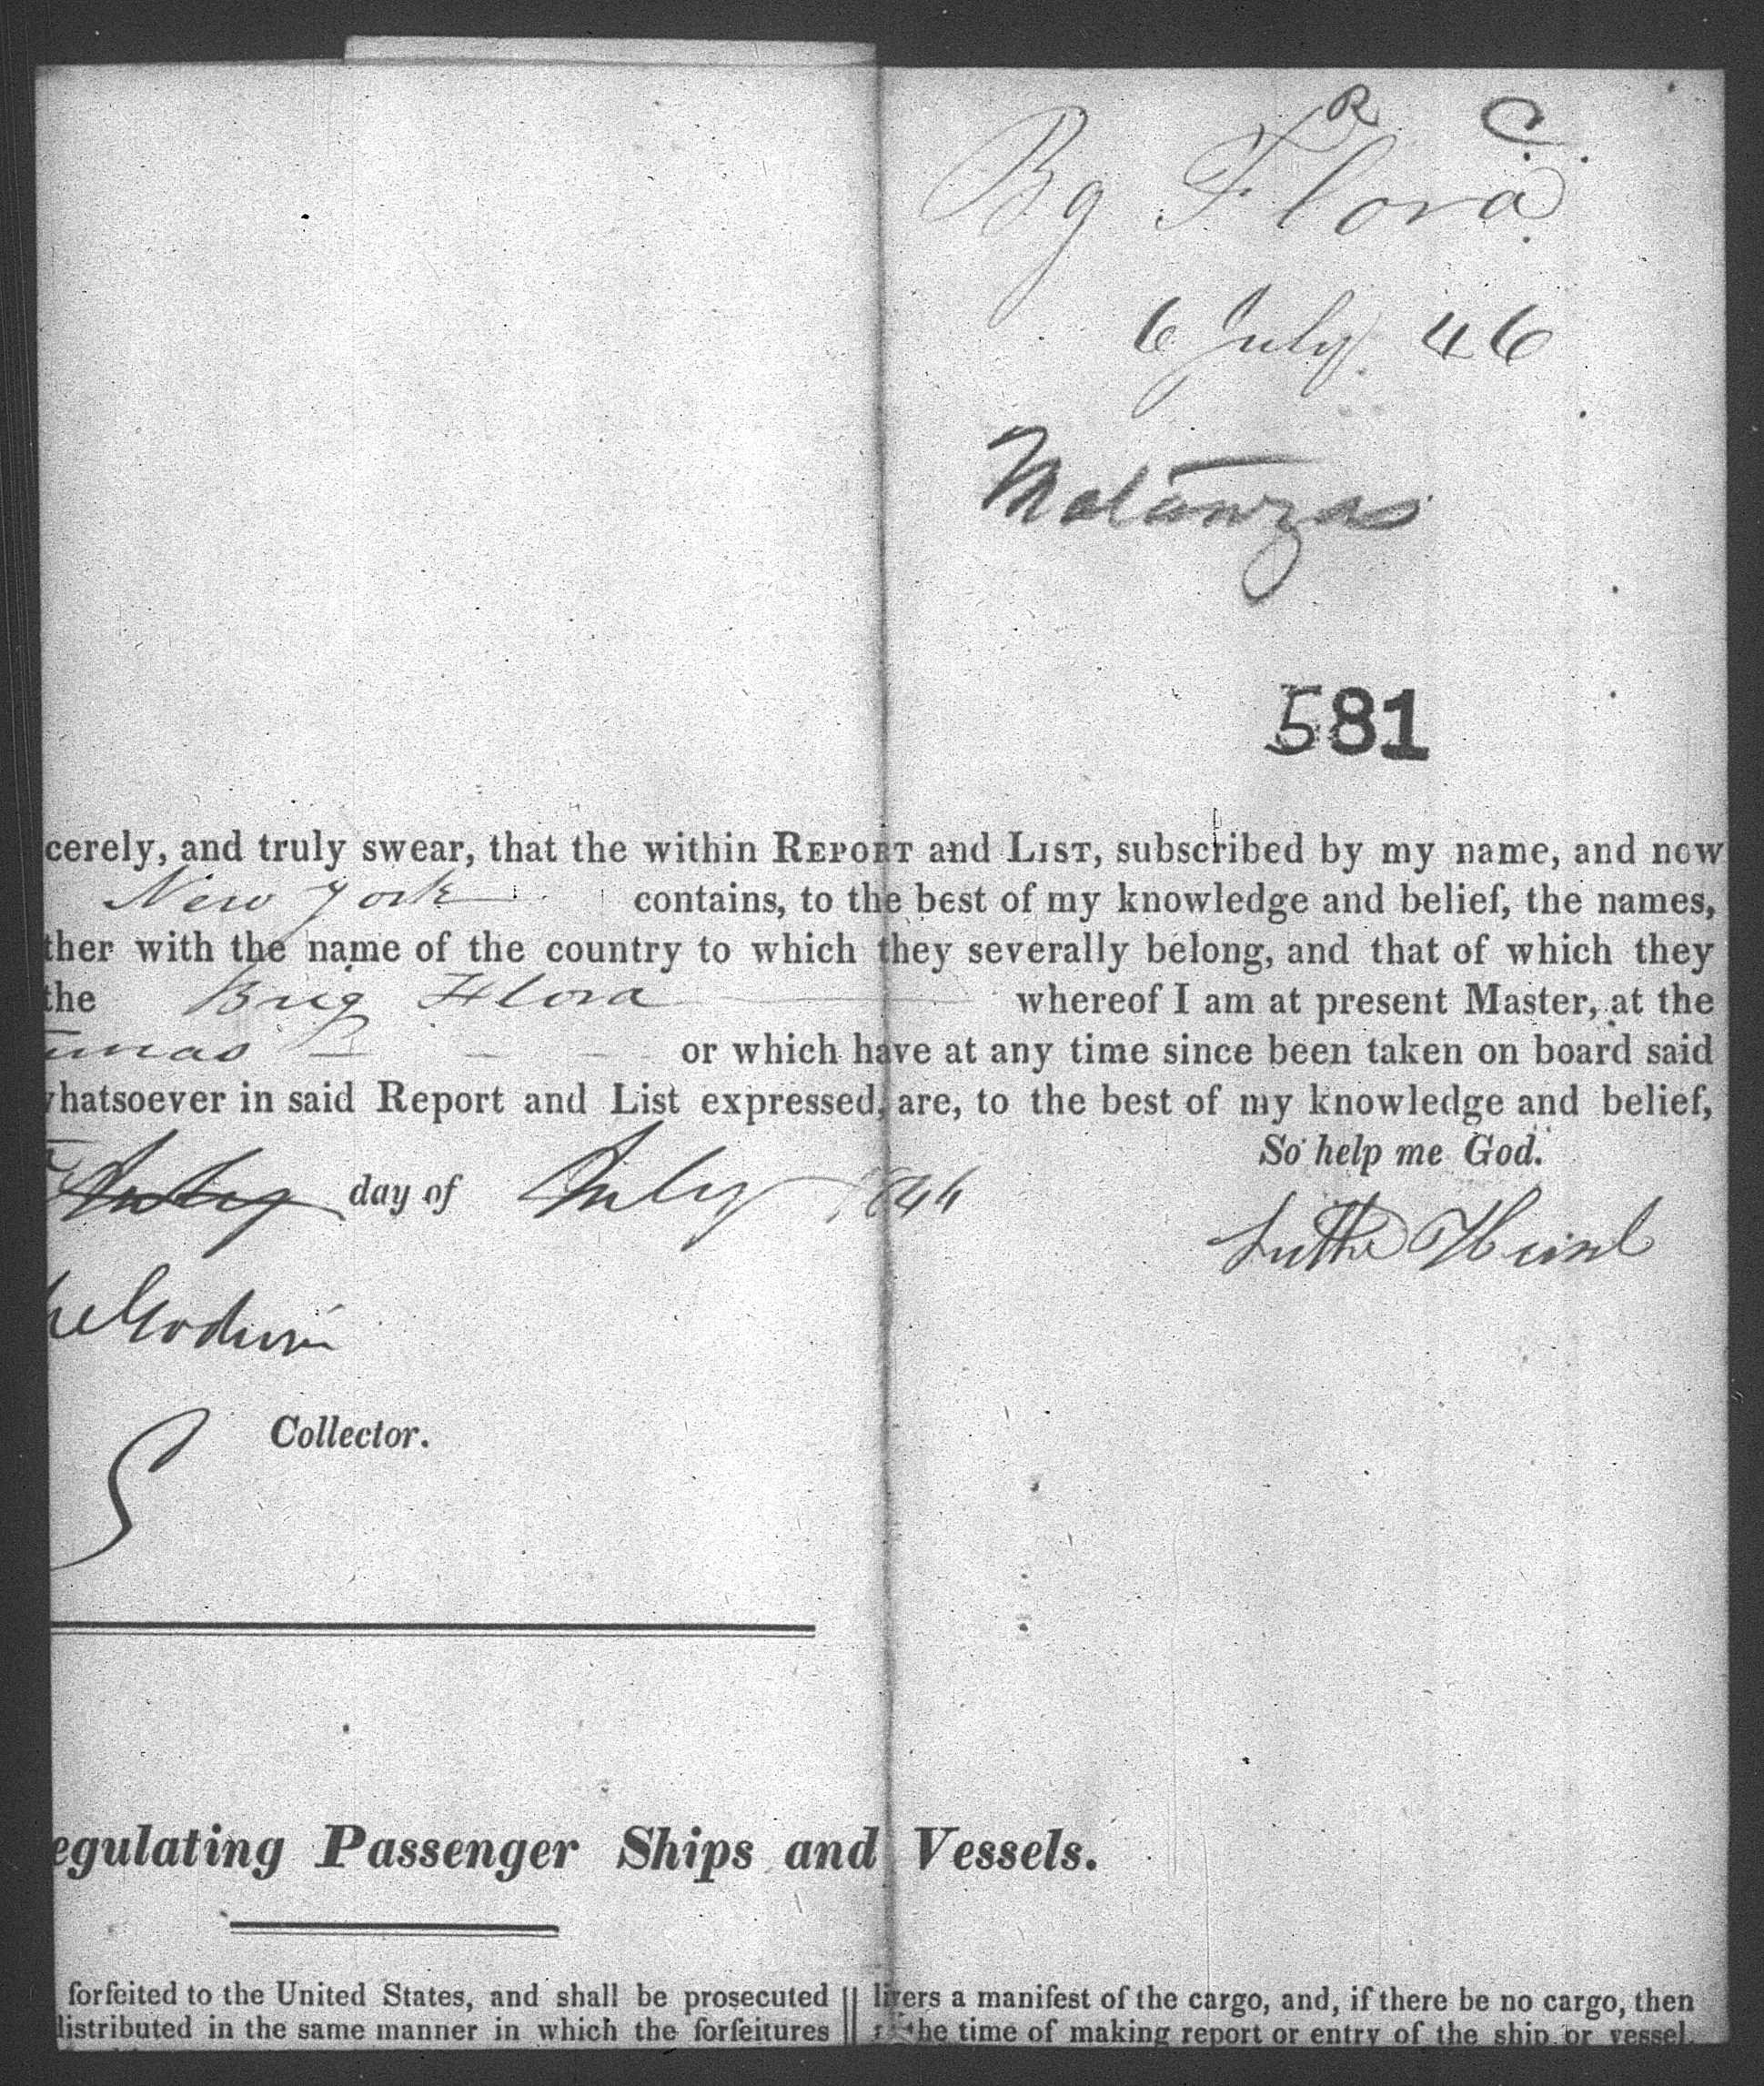 R C
Bg Flora
6 July 46
Matanzas
581
cerely, and truly swear, that the within REPORT and LIST, subscribed by my name, and now
New York contains, to the best of my knowledge and belief, the names,
ther with the name of the country to which they severally belong, and that of which they
the Brig Flora whereof I am at present Master, at the
or which have at any time since been taken on board said
whatsoever in said Report and List expressed, are, to the best of my knowledge and belief,
So help me God.
July day of July 1846
Collector.
egulating Passenger Ships and Vessels.
forfeited to the United States, and shall be prosecuted
distributed in the same manner in which the forfeitures
livers a manifest of the cargo, and, if there be no cargo, then
the time of making report or entry of the ship or vessel,